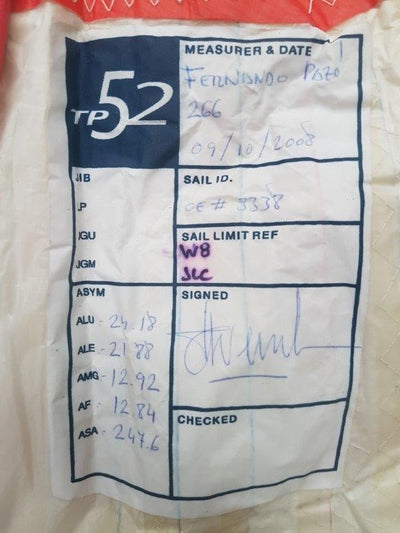 TP52
MEASURER & DATE
FERNANDO POZO
266
09/10/2008
JIB
LP
JGU
JGM
SAIL ID.
OE# 3338
SAIL LIMIT REF
W8
JLC
ASYM
ALU - 24.18
ALE - 21.88
AMG - 12.92
AF - 12.84
ASA - 247.6
SIGNED
CHECKED